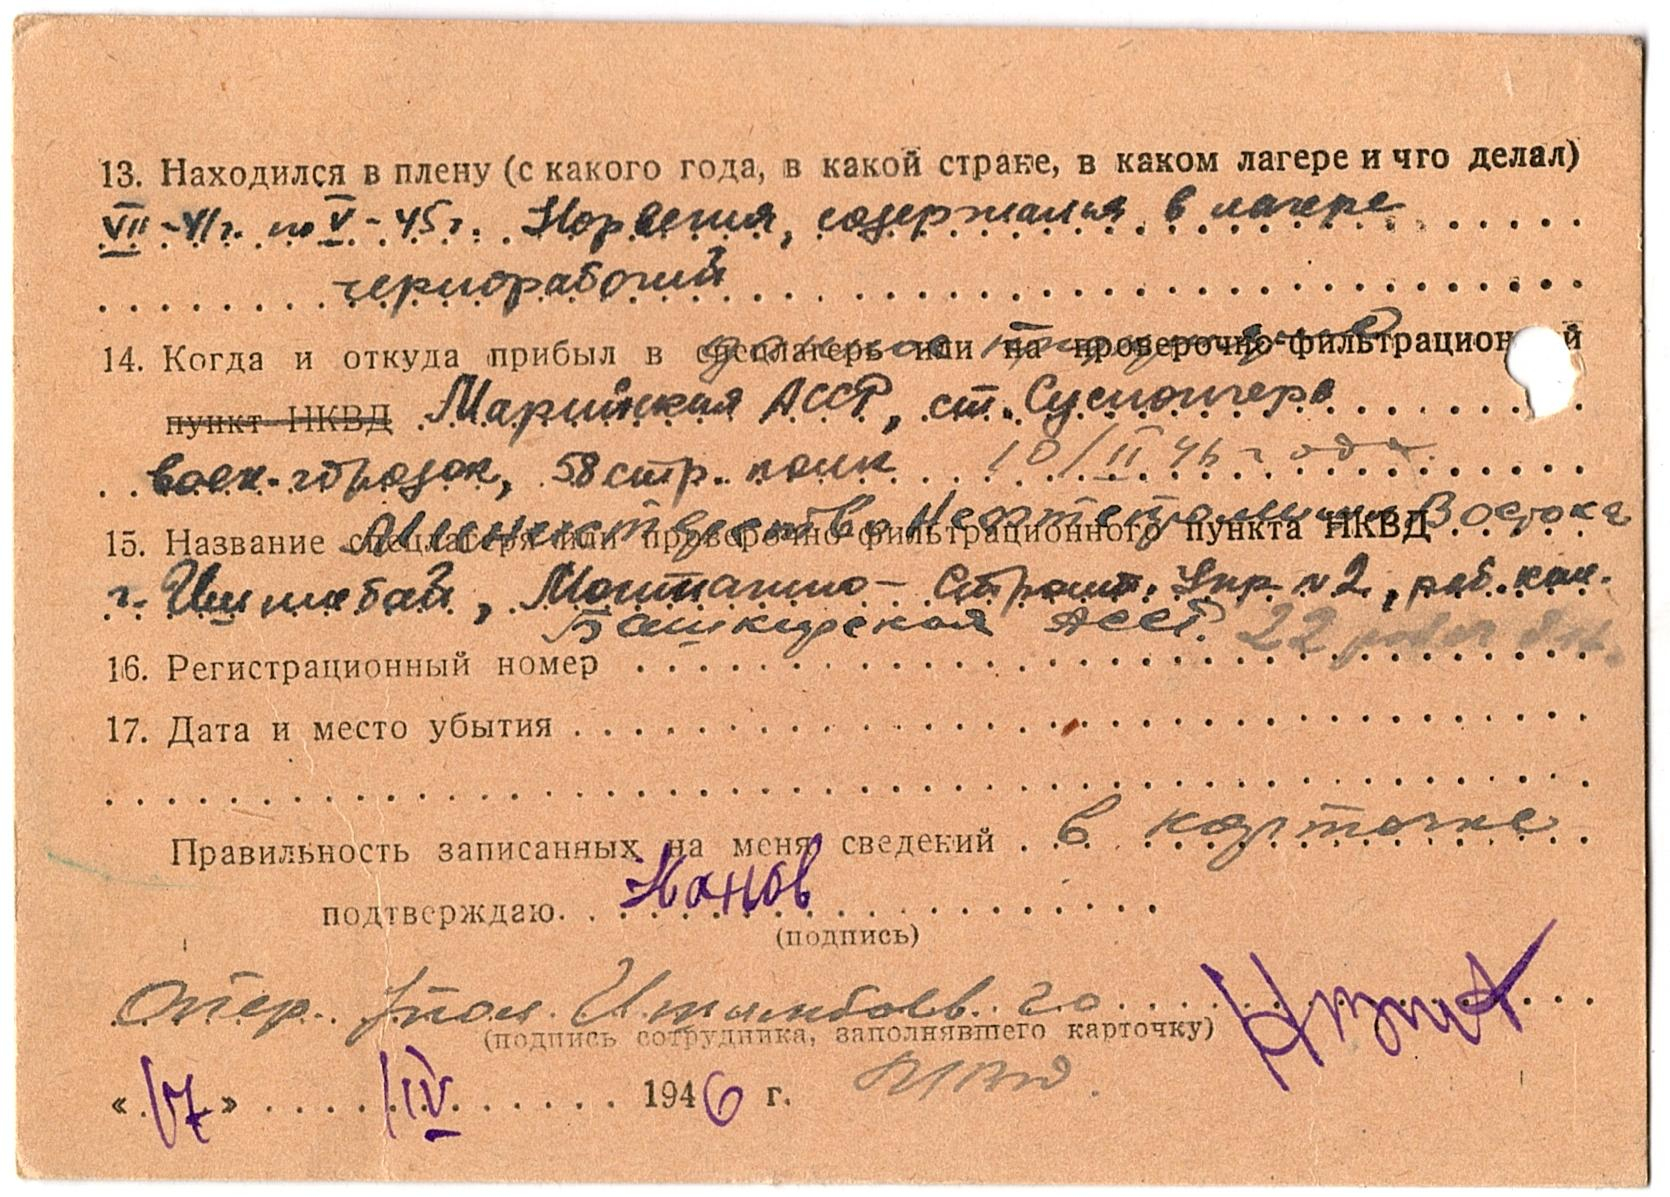 13. Находился в плену (с какого года, в какой стране, в каком лагере и что делал)
VII-41г. по V-45г. Норвегия, содержался в лагере
чернорабочий
14. Когда и откуда прибыл в спецлагерь или на проверочно-фильтрационный
пункт НКВД Марийская АССР, ст. Суслонгер
воен. городок, 58 стр. полк 10/II 46 года.
Министерство Нефтепром Востока
15. Название спецлагеря или проверочно-фильтрационного пункта НКВД
г. Ишимбай, Монтажно-Строит. Упр №2, раб. кол.
Башкирская АССР. 22
16. Регистрационный номер
17. Дата и место убытия
Правильность записанных на меня сведений в карточке
подтверждаю. Нанов
(подпись)
Опер. Упол. Ишимбаев. ГО
(подпись сотрудника, заполнявшего карточку)
« 17 » IV 1946 г. МВД.